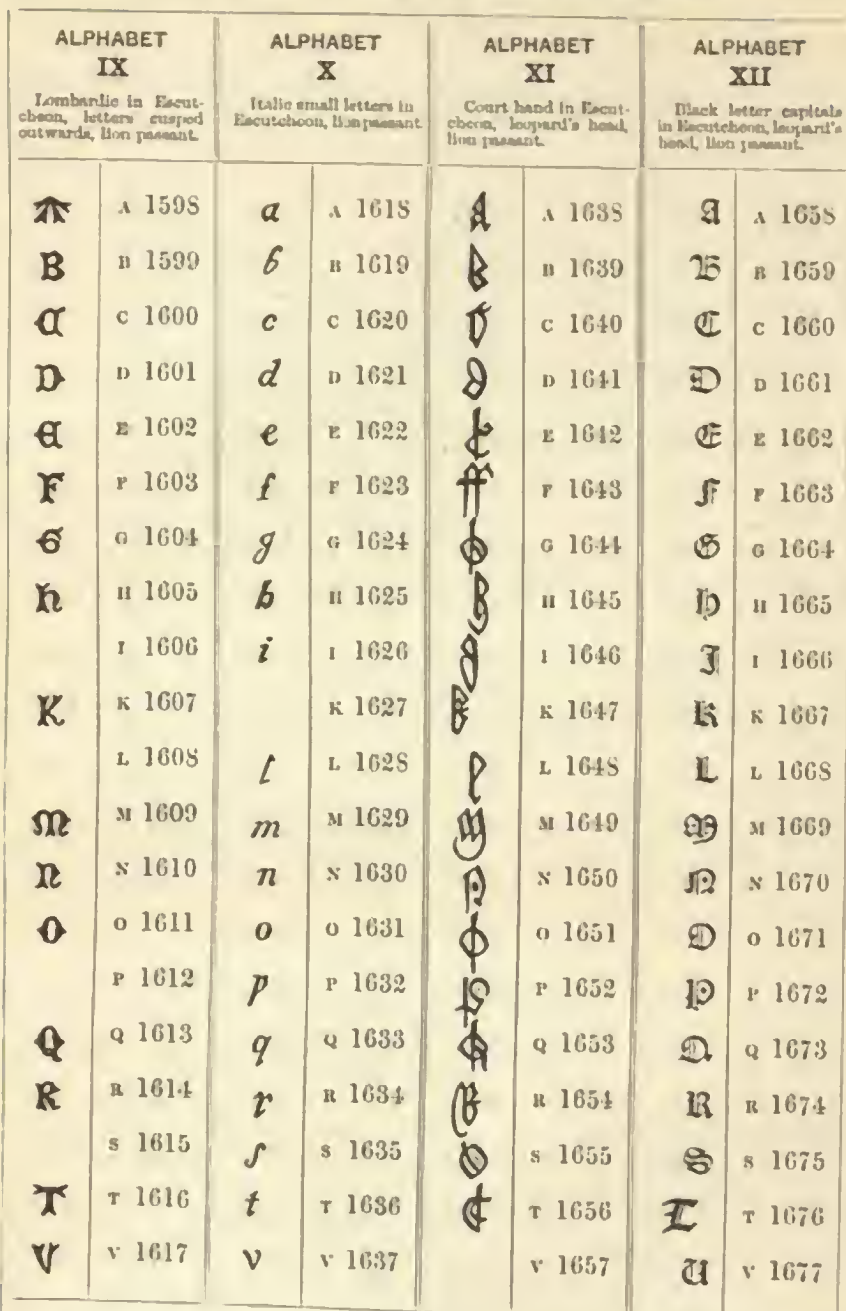 ALPHABET IX
Lombardic in Escut-
cheon, letters cusped
outwards, lion passant.
A A 1598
B B 1599
C C 1600
D D 1601
E E 1602
F F 1603
G G 1604
h H 1605
I 1606
K K 1607
L 1608
M M 1609
n N 1610
O O 1611
P 1612
Q Q 1613
R R 1614
S 1615
T T 1616
V V 1617
ALPHABET X
Italic small letters in
Escutcheon, lion passant
a A 1618
b B 1619
c C 1620
d D 1621
e E 1622
f F 1623
g G 1624
h H 1625
i I 1626
K 1627
l L 1628
m M 1629
n N 1630
o O 1631
p P 1632
q Q 1633
r R 1634
ſ S 1635
t T 1636
v V 1637
ALPHABET XI
Court hand in Escut-
cheon, leopard's head,
lion passant.
A 1638
B 1639
C 1640
D 1641
E 1642
F 1643
G 1644
H 1645
I 1646
K 1647
L 1648
M 1649
N 1650
O 1651
P 1652
Q 1653
R 1654
S 1655
T 1656
V 1657
ALPHABET XII
Black letter capitals
in Escutcheon, leopard's
head, lion passant.
A A 1658
B B 1659
C C 1660
D D 1661
E E 1662
F F 1663
G G 1664
H H 1665
I I 1666
K K 1667
L L 1668
M M 1669
N N 1670
O O 1671
P P 1672
Q Q 1673
R R 1674
S S 1675
T T 1676
U V 1677